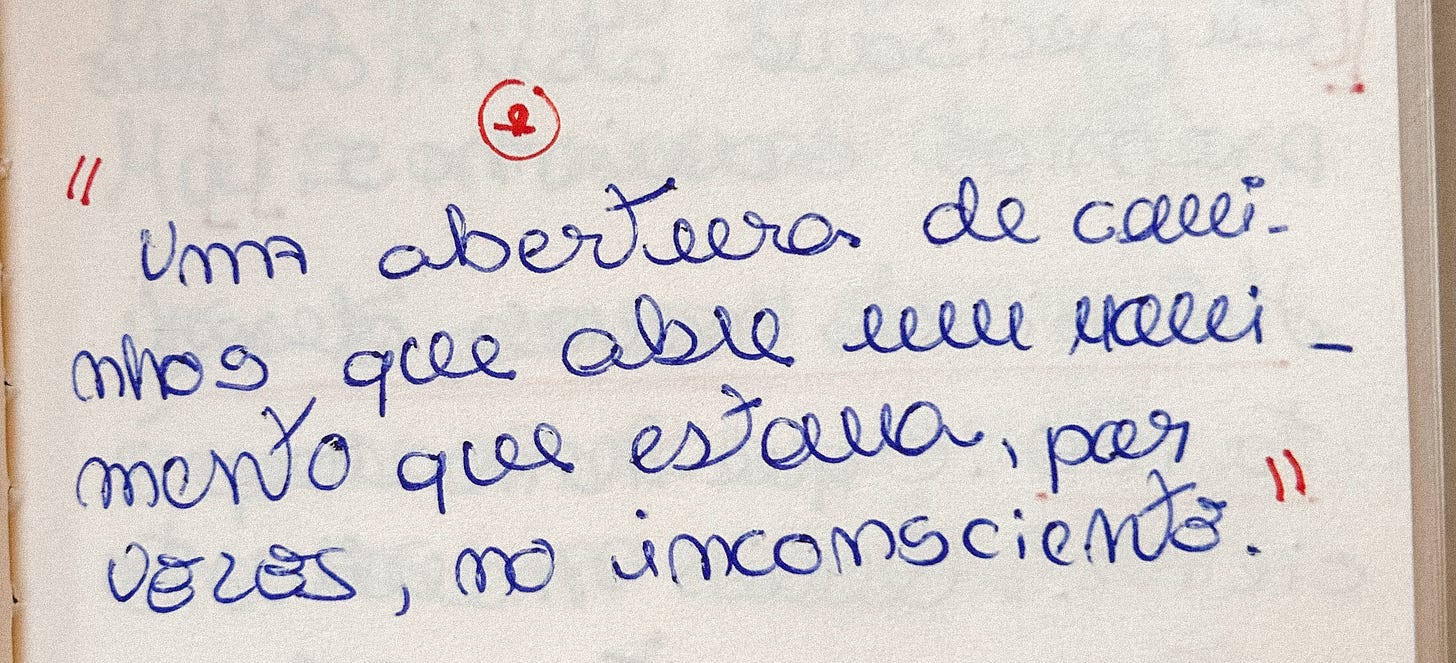 "Uma abertura de cami-
nhos que abre um movi-
mento que estava, por
vezes, no inconsciente."